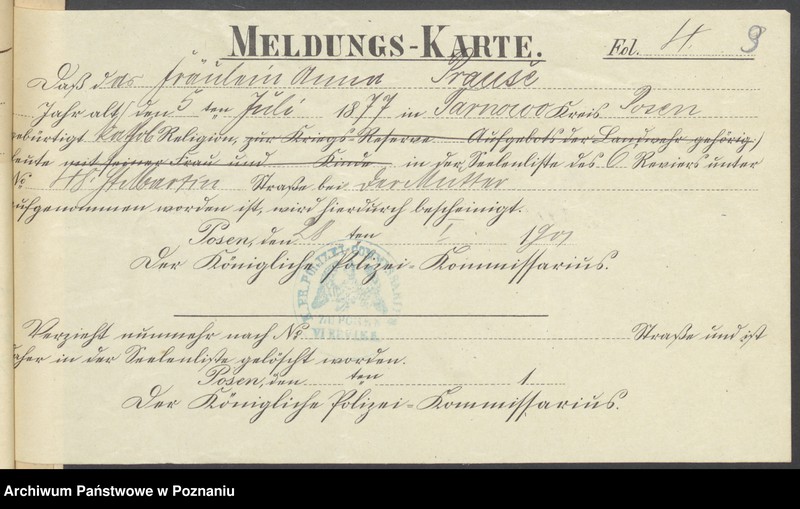 MELDUNGS-KARTE.
Fol. 4. 9
Daß das Fräulein Anna Prause
Jahr alt, den 5ten Juli 1877 in Tarnowo Kreis Posen
gebürtigt kathol Religion, zur Kriegs-Reserve Aufgebots der Landwehr gehörig,
heute mit seiner Frau und Kinde in der Seelenliste des 6 Reviers unter
No 48. St Martin Straße bei der Mutter
aufgenommen worden ist, wird hierdurch bescheinigt.
Posen, den 28 ten I. 1901
Der Königliche Polizei-Kommissarius.
Verzieht nunmehr nach No Straße und ist
daher in der Seelenliste gelöscht worden.
Posen, den ten 1
Der Königliche Polizei-Kommissarius.
Archiwum Państwowe w Poznaniu